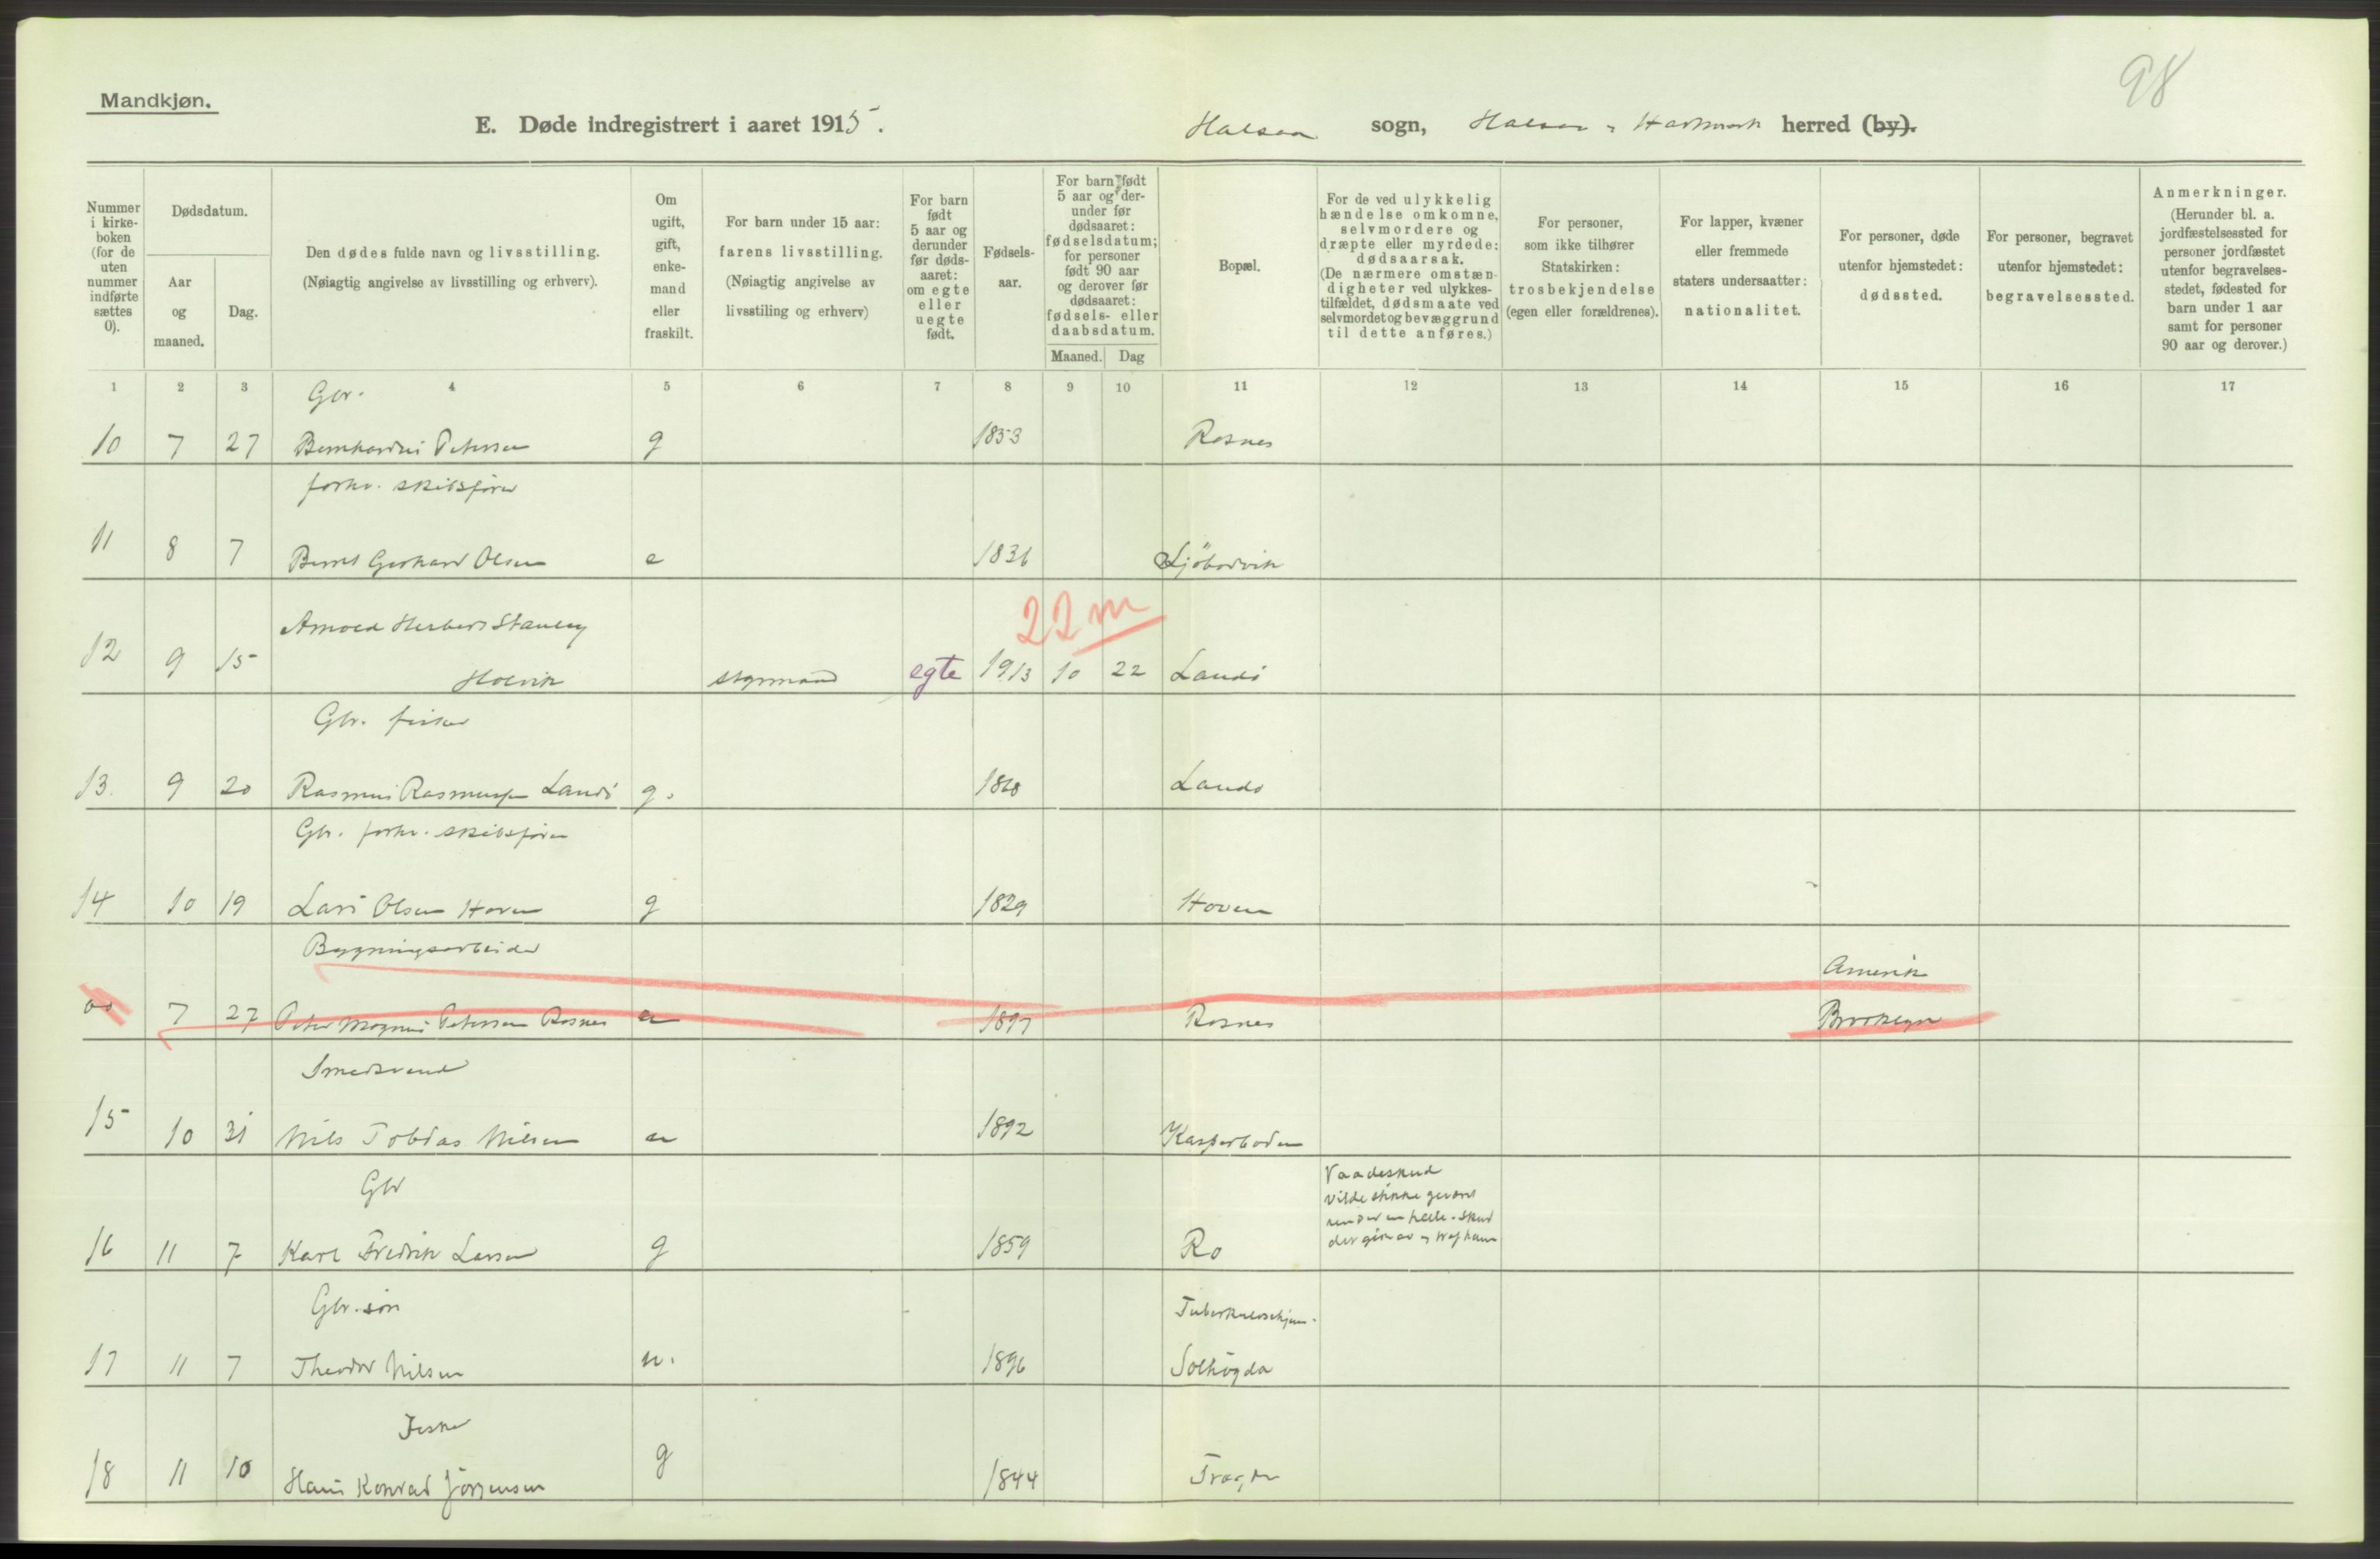 98
Mandkjøn.
E. Døde indregistrert i aaret 1915. Halsaa sogn, Halsaa og Hartmark herred (by).
Nummer i kirkeboken (for de uten nummer indførte sættes 0).
Dødsdatum.
Aar og maaned.
Dag.
Den dødes fulde navn og livsstilling.
(Nøiagtig angivelse av livsstilling og erhverv).
Om ugift, gift, enkemand eller fraskilt.
For barn under 15 aar: farens livsstilling.
(Nøiagtig angivelse av livsstiling og erhverv)
For barn født 5 aar og derunder før dødsaaret: om egte eller uegte født.
Fødselsaar.
For barn født 5 aar og derunder før dødsaaret: fødselsdatum; for personer født 90 aar og derover før dødsaaret: fødsels- eller daabsdatum.
Maaned. Dag
Bopæl.
For de ved ulykkelig hændelse omkomne, selvmordere og dræpte eller myrdede: dødsaarsak.
(De nærmere omstændigheter ved ulykkestilfældet, dødsmaate ved selvmordet og bevæggrund til dette anføres.)
For personer, som ikke tilhører Statskirken: trosbekjendelse (egen eller forældrenes).
For lapper, kvæner eller fremmede staters undersaatter: nationalitet.
For personer, døde utenfor hjemstedet: dødssted.
For personer, begravet utenfor hjemstedet: begravelsessted.
Anmerkninger.
(Herunder bl. a. jordfæstelsessted for personer jordfæstet utenfor begravelsesstedet, fødested for barn under 1 aar samt for personer 90 aar og derover.)
1 2 3 4 5 6 7 8 9 10 11 12 13 14 15 16 17
Gbr.
10 7 27 Bernhardus Petersen g 1853 Rosnes
forhv. skibsfører
11 8 7 Bernt Gerhard Olsen e 1836 Ljöbodvik
22 m
Arnold Herbert Stanley
12 9 15 Holvik styrmand egte 1913 10 22 Landö
Gbr. fisker
13. 9 20 Rasmus Rasmussen Landö g. 1868 Landö
Gbr. forhv. skibsfører
14 10 19 Lars Olsen Hoven g 1829 Hoven
Bygningsarbeider Amerik
7 27 Peter Magnus Petersen Rosnes 1897 Rosnes Brooklyn
Smedsvend
15 10 31 Nils Tobias Nilsen u 1892 Kasperboden
Gbr Vaadeskud
vilde stikke geværet
under en helle. Skud
der gik av og traf ham
16 11 7 Karl Fredrik Larsen g 1859 Ro
Gbr. søn Tuberkulosehjem.
17 11 7 Theodor Nilsen u. 1896 Solhögda
Fisker
18 11 10 Hans Konrad Jörgensen g 1844